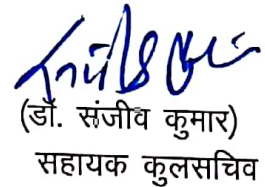 (डॉ. संजीव कुमार)
सहायक कुलसचिव